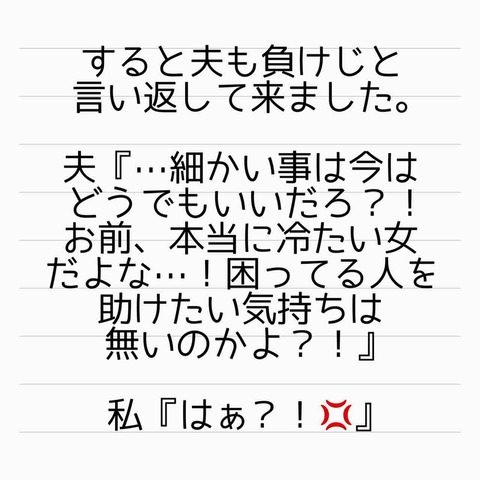 すると夫も負けじと
言い返して来ました。
夫『…細かい事は今は
どうでもいいだろ？！
お前、本当に冷たい女
だよな…！困ってる人を
助けたい気持ちは
無いのかよ？！』
私『はぁ？！💢』